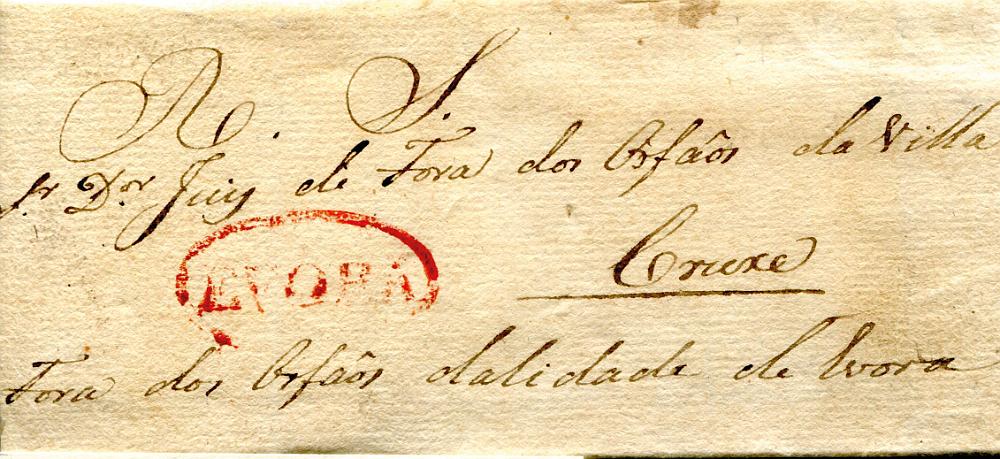 R. S.
Sr Dor Juiz de Fora dos Orfaôs da Villa
EVORA
Fora dos Orfaôs da Cidade de Evora